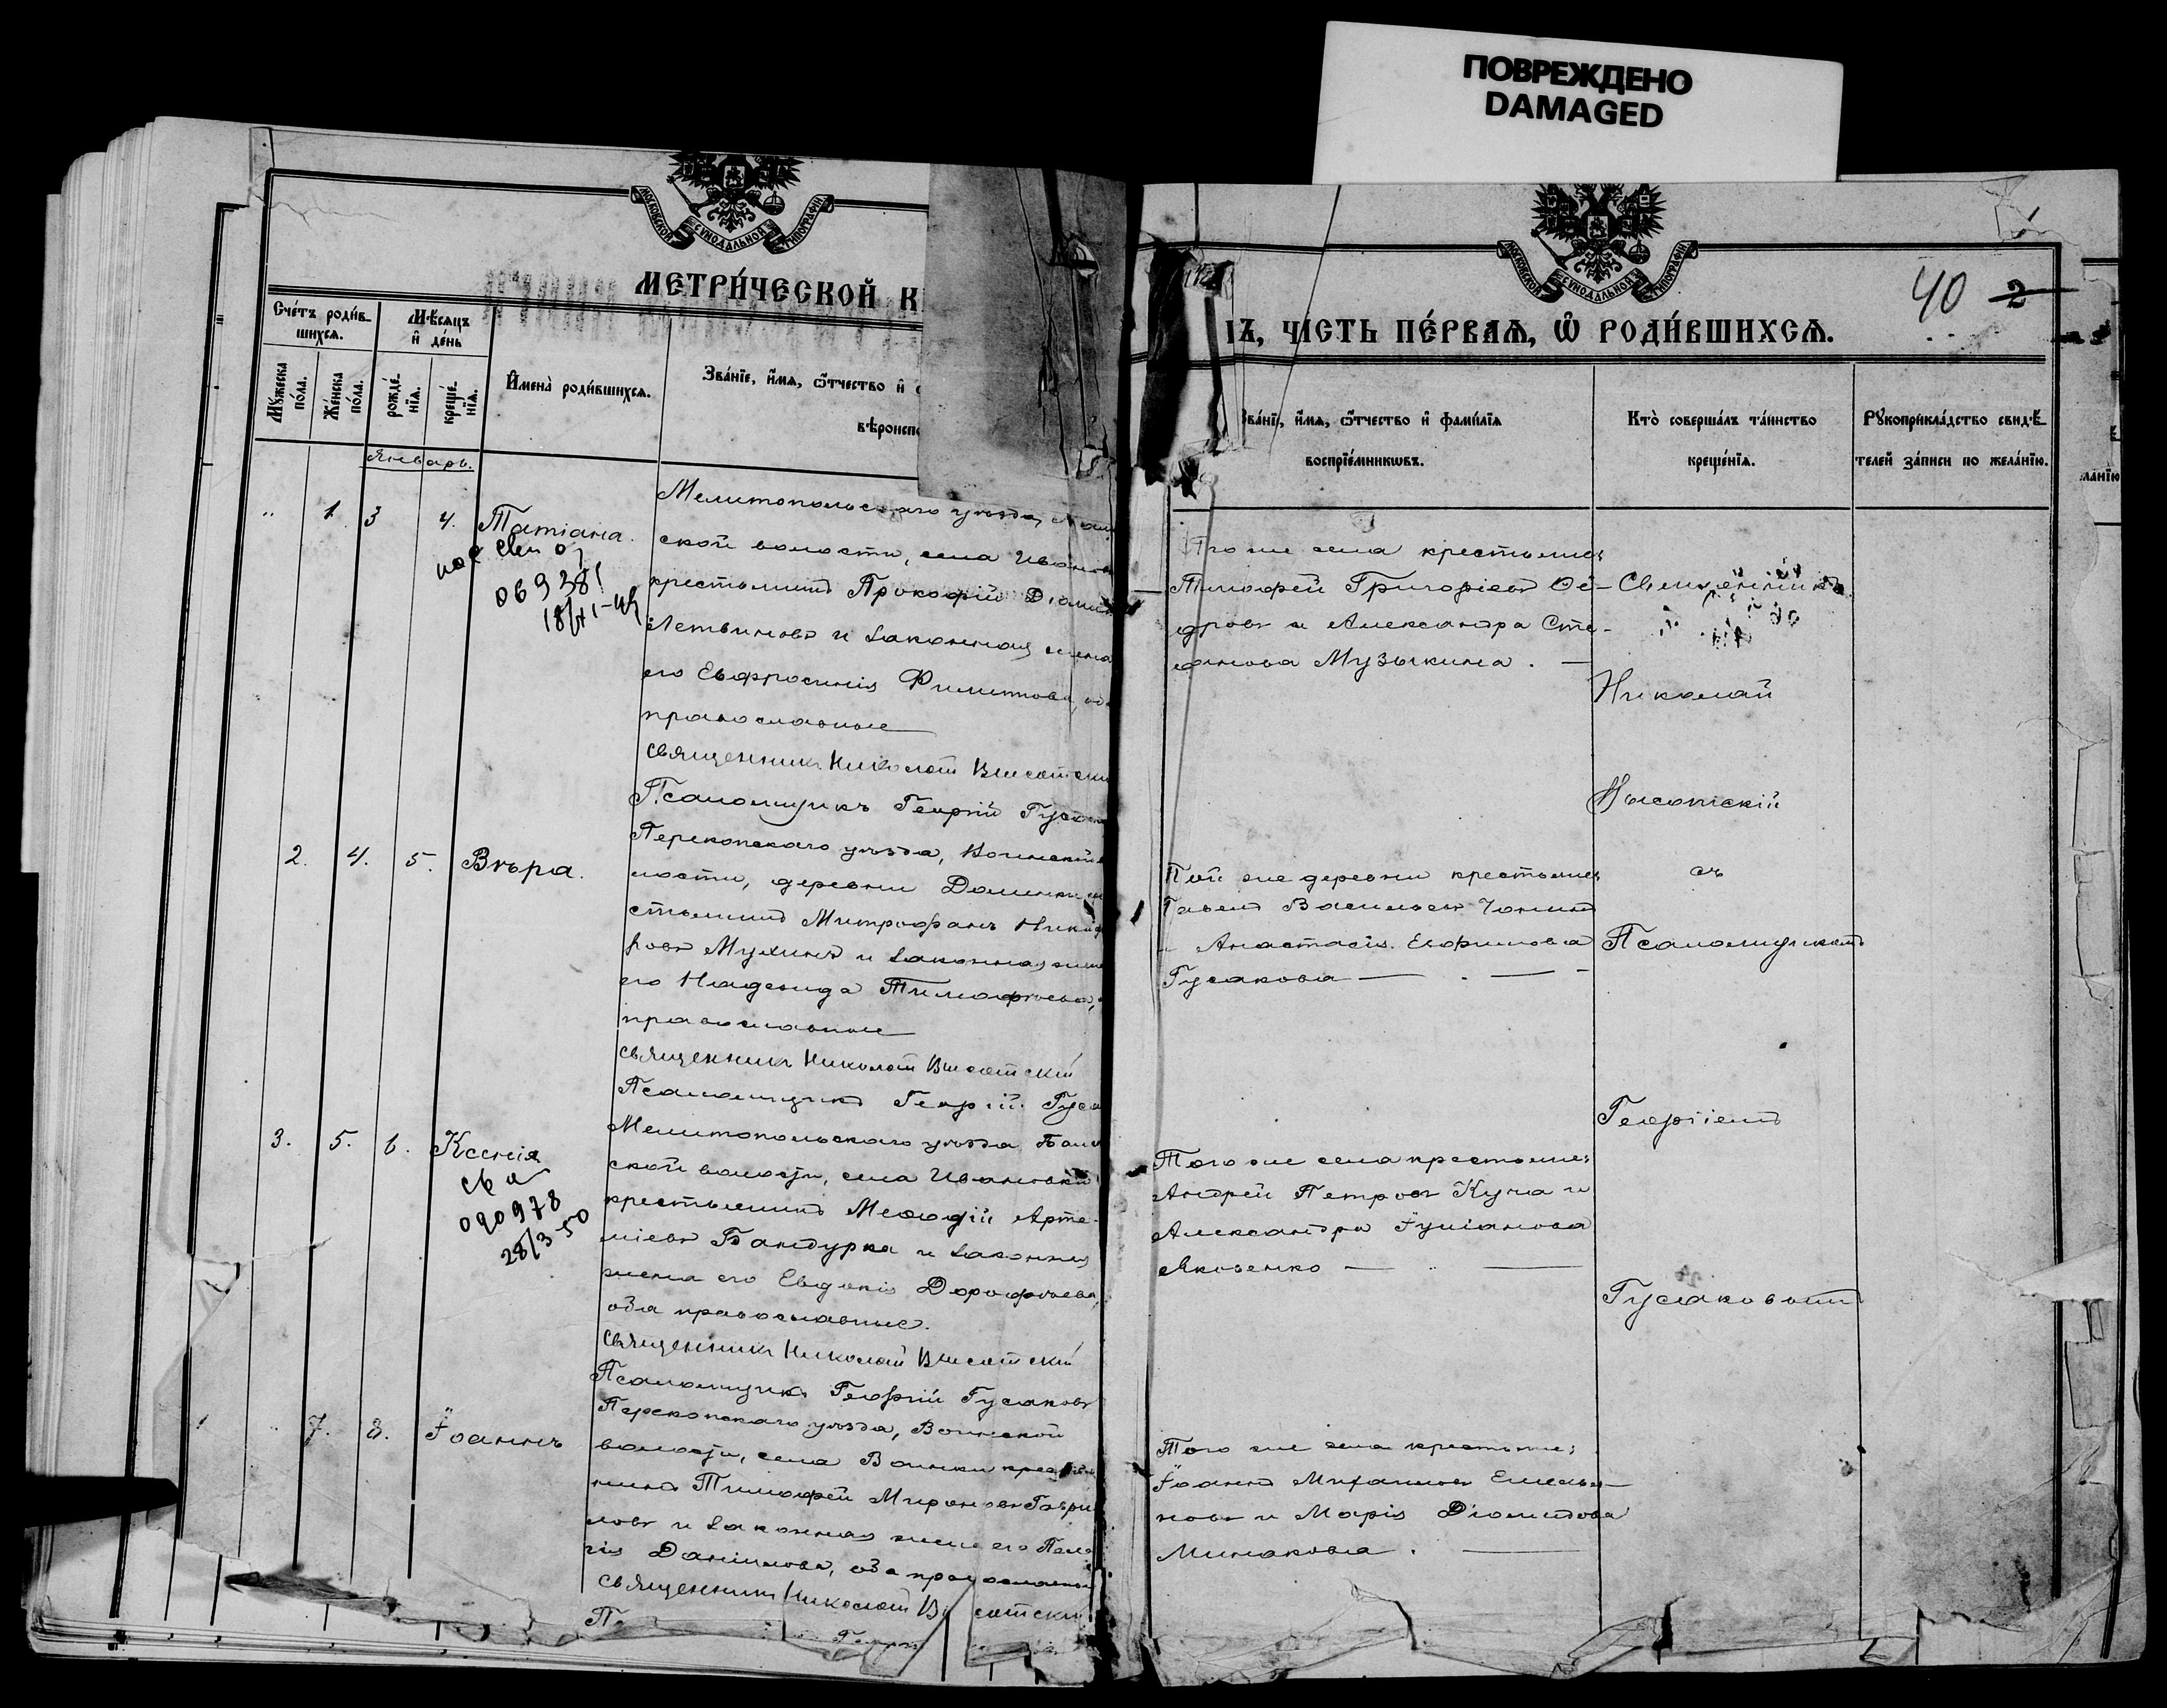 ПОВРЕЖДЕНО
DAMAGED
МОСКОВСКОЙ СѴНОДАЛЬНОЙ ТИПОГРАФІИ
МЕТРИ́ЧЕСКОЙ К
Сче́тъ роди́в-
шихсѧ.
Мѣ́сѧцъ
и҆ день
Мꙋ́жеска по́ла.
Же́нска по́ла.
рожде́-нїѧ.
креще́-нїѧ.
И҆мена̀ роди́вшихсѧ.
Зва́нїе, и҆́мѧ, ѻ҆́тчество и҆
вѣроиспо
Январь.
.. 1. 3 4. Татіана.
Мелитопольскаго уѣзда,
ской волости, села Иванов
крестьянинъ Прокофій Діоми
Летвиновъ и законная жена
его Евфросинія Филиппова,
православные
Священникъ Николай Высотскій
Псаломщикъ Георгій Гусак
069381
18/XI-49
2. 4. 5. Вѣра.
Перекопскаго уѣзда, Воинской
лости, деревни
стьянинъ Митрофанъ Никиф
ровъ Мухинъ и законная жена
его Надежда Тимофѣева,
православные
Священникъ Николай Высотскій
Псаломщикъ Георгій Гуса
3. 5. 6. Ксенія
Мелитопольскаго уѣзда
ской волости, села Ивановки
крестьянинъ Меѳодій Арте-
міевъ Бандурка и законная
жена его Евдокія Дорофѣева,
оба православные.
Священникъ Николай Высотскій
Псаломщикъ Георгій Гусаковъ
св
090978
28/3 50
1 .. 7. 8. Іоаннъ
Перекопскаго уѣзда, Воинской
волости, села Воинки крестья
нинъ Тимофей Мироновъ Гаври
ловъ и законная жена его Пела
гія Даніилова, оба православные
Священникъ Николай Высотскій
Пс Георгі
МОСКОВСКОЙ СѴНОДАЛЬНОЙ ТИПОГРАФІИ
40 2
ЧА́СТЬ ПЕ́РВАѦ, Ѡ҆ РОДИ́ВШИХСѦ.
Зва́нїе, и҆́мѧ, ѻ҆́тчество и҆ фами́лїѧ
воспрїе́мникѡвъ.
Кто̀ соверша́лъ та́инство
креще́нїѧ.
Рꙋкоприкла́дство свидѣ́-
телей за́писи по жела́нїю.
того же села крестьяне:
Тимофей Григорьевъ Ѳе-
дровъ и Александра Сте-
фанова Музыкина. —
Священникъ
Николай
Высотскій
съ
Псаломщикомъ
Георгіемъ
Гусаковымъ
Той же деревни крестьяне
Павелъ Васильевъ Чонинъ
и Анастасія Ефимова
Гусакова — . —
Того же села крестьяне:
Андрей Петровъ Куча и
Александра Іуліанова
Яковенко — .. —
Того же села крестьяне:
Іоаннъ Михаиловъ Емелья-
новъ и Марія Діомидова
Минакова. —